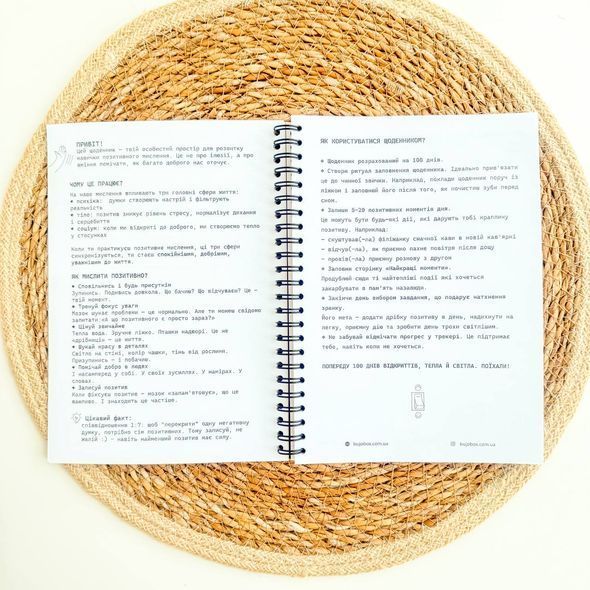 ПРИВІТ!
Цей щоденник — твій особистий простір для розвитку
навички позитивного мислення. Це не про ілюзії, а про
вміння помічати, як багато доброго нас оточує.
ЧОМУ ЦЕ ПРАЦЮЄ?
На наше мислення впливають три головні сфери життя:
● психіка: думки створюють настрій і фільтрують
реальність
● тіло: позитив знижує рівень стресу, нормалізує дихання
і серцебиття
● соціум: коли ми відкриті до доброго, ми створюємо тепло
у стосунках
Коли ти практикуєш позитивне мислення, ці три сфери
синхронізуються, ти стаєш спокійнішим, добрішим,
уважнішим до життя.
ЯК МИСЛИТИ ПОЗИТИВНО?
● Сповільнись і будь присутнім
Зупинись. Подивись довкола. Що бачиш? Що відчуваєш? Це —
твій момент.
● Тренуй фокус уваги
Мозок шукає проблеми — це нормально. Але ти можеш свідомо
запитати:«А що позитивного є просто зараз?»
● Цінуй звичайне
Тепла вода. Зручне ліжко. Пташки надворі. Це не
«дрібниці» — це життя.
● Шукай красу в деталях
Світло на стіні, колір чашки, тінь від рослини.
Призупинись — і побачиш.
● Помічай добро в людях
І насамперед у собі. У своїх зусиллях. У намірах. У
словах.
● Записуй позитив
Коли фіксуєш позитив — мозок «запам'ятовує», що це
важливо. І знаходить це частіше.
Цікавий факт:
співвідношення 1:7: щоб "перекрити" одну негативну
думку, потрібно сім позитивних. Тому записуй, не
жалій :) — навіть найменший позитив має силу.
ЯК КОРИСТУВАТИСЯ ЩОДЕННИКОМ?
● Щоденник розрахований на 100 днів.
● Створи ритуал заповнення щоденника. Ідеально прив'язати
це до чинної звички. Наприклад, поклади щоденник поруч із
ліжком і заповнюй його після того, як почистиш зуби перед
сном.
● Запиши 5–20 позитивних моментів дня.
Це можуть бути будь-які дії, які дарують тобі краплину
позитиву. Наприклад:
– скуштував(-ла) філіжанку смачної кави в новій кав'ярні
– відчув(-ла), як приємно пахне повітря після дощу
– провів(-ла) приємну розмову з другом
● Заповни сторінку «Найкращі моменти».
Продублюй сюди ті найтепліші події які хочеться
закарбувати в пам'ять назавжди.
● Закінчи день вибором завдання, що подарує натхнення
зранку.
Його мета — додати дрібку позитиву в день, надихнути на
легку, приємну дію та зробити день трохи світлішим.
● Не забувай відмічати прогрес у трекері. Це підтримає
тебе, навіть коли не хочеться.
ПОПЕРЕДУ 100 ДНІВ ВІДКРИТТІВ, ТЕПЛА Й СВІТЛА. ПОЇХАЛИ!
bujobox.com.ua
bujobox.com.ua